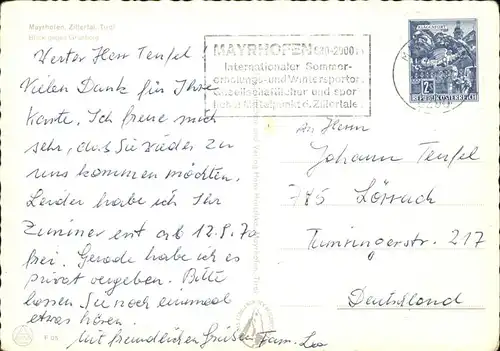 Mayrhofen, Zillertal, Tirol
Blick gegen Grünberg
Werter Herr Teufel
Vielen Dank für Ihre
Karte. Ich freue mich
sehr, das Sie wieder zu
uns kommen möchten.
Leider habe ich Ihr
Zimmer erst ab 12.8.70
frei. Gerade habe ich es
privat vergeben. Bitte
lassen Sie noch einmal
etwas hören.
Mit freundlichen Grüßen Fam.
MAYRHOFEN 630-2000
Internationaler Sommer-
erholungs- und Wintersportort
Gesellschaftlicher und spor
licher Mittelpunkt d. Zillertales
2
REPUBLIK ÖSTERREICH
An Herrn
Johann Teufel
785 Lörrach
Tumringerstr. 217
Deutschland